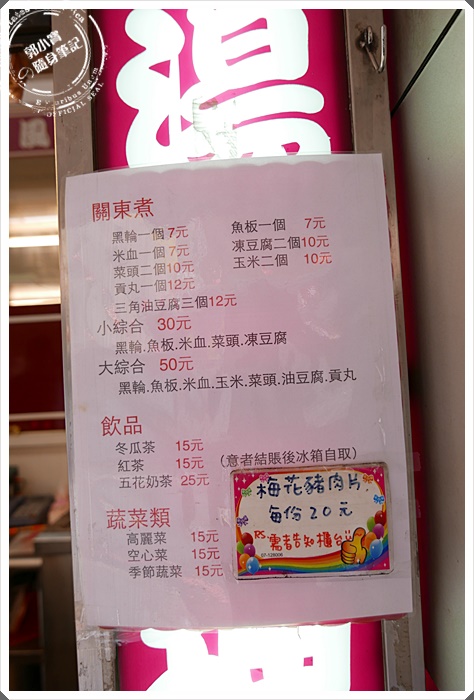 郭小寶
の隨身筆記
OFFICIAL SEAL
湯
關東煮
黑輪一個 7元 魚板一個 7元
米血一個 7元 凍豆腐二個10元
菜頭二個10元 玉米二個 10元
貢丸一個12元
三角油豆腐三個12元
小綜合 30元
黑輪.魚板.米血.菜頭.凍豆腐
大綜合 50元
黑輪.魚板.米血.玉米.菜頭.油豆腐.貢丸
飲品
冬瓜茶 15元
紅茶 15元 (意者結賬後冰箱自取)
五花奶茶 25元
蔬菜類
高麗菜 15元
空心菜 15元
季節蔬菜 15元
梅花豬肉片
每份20元
RS.需者告知櫃台!!
07-128006